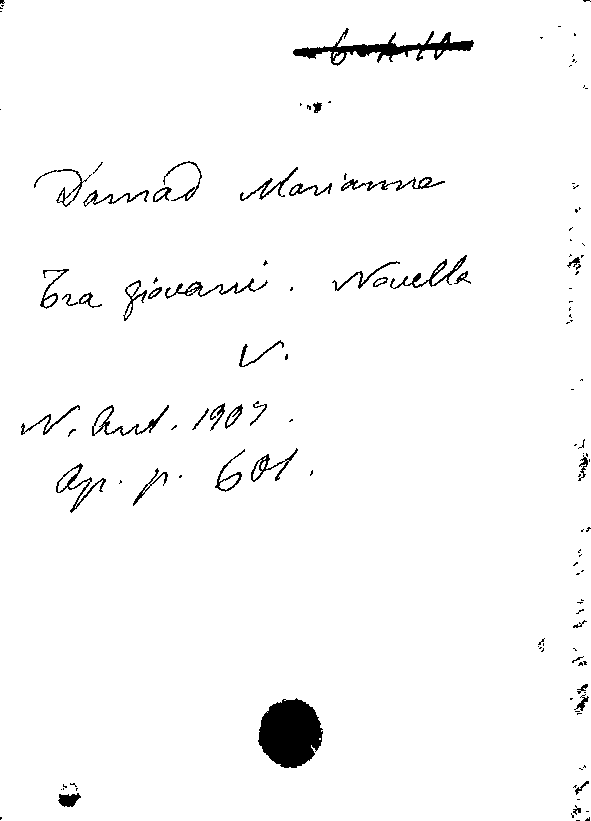 6-4-10
Damad Marianne
Tra giovani. Novella
V.
N. Ant. 1907.
Ap. p. 601.